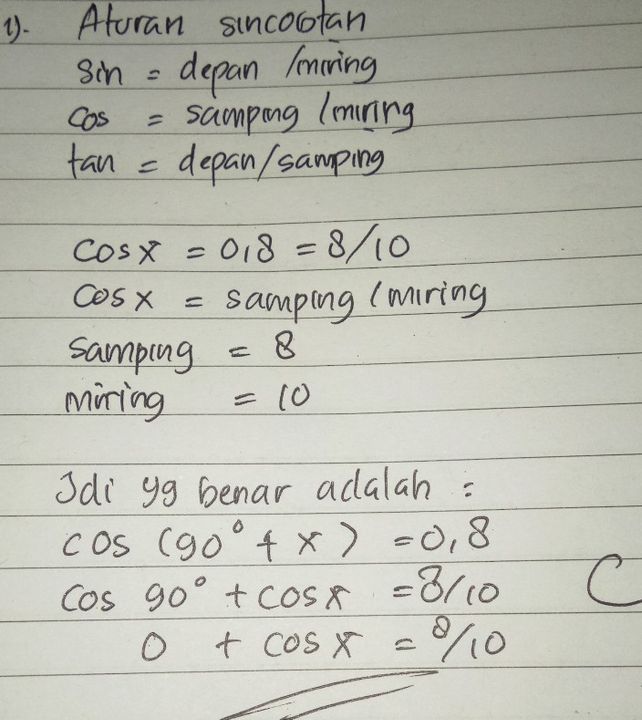 1). Aturan sincostan
sin = depan /miring
cos = samping /miring
tan = depan/samping
cos x = 0,8 = 8/10
cos x = samping /miring
samping = 8
miring = 10
Jdi yg benar adalah :
cos (90° + x) = 0,8
cos 90° + cos x = 8/10 C
0 + cos x = 8/10